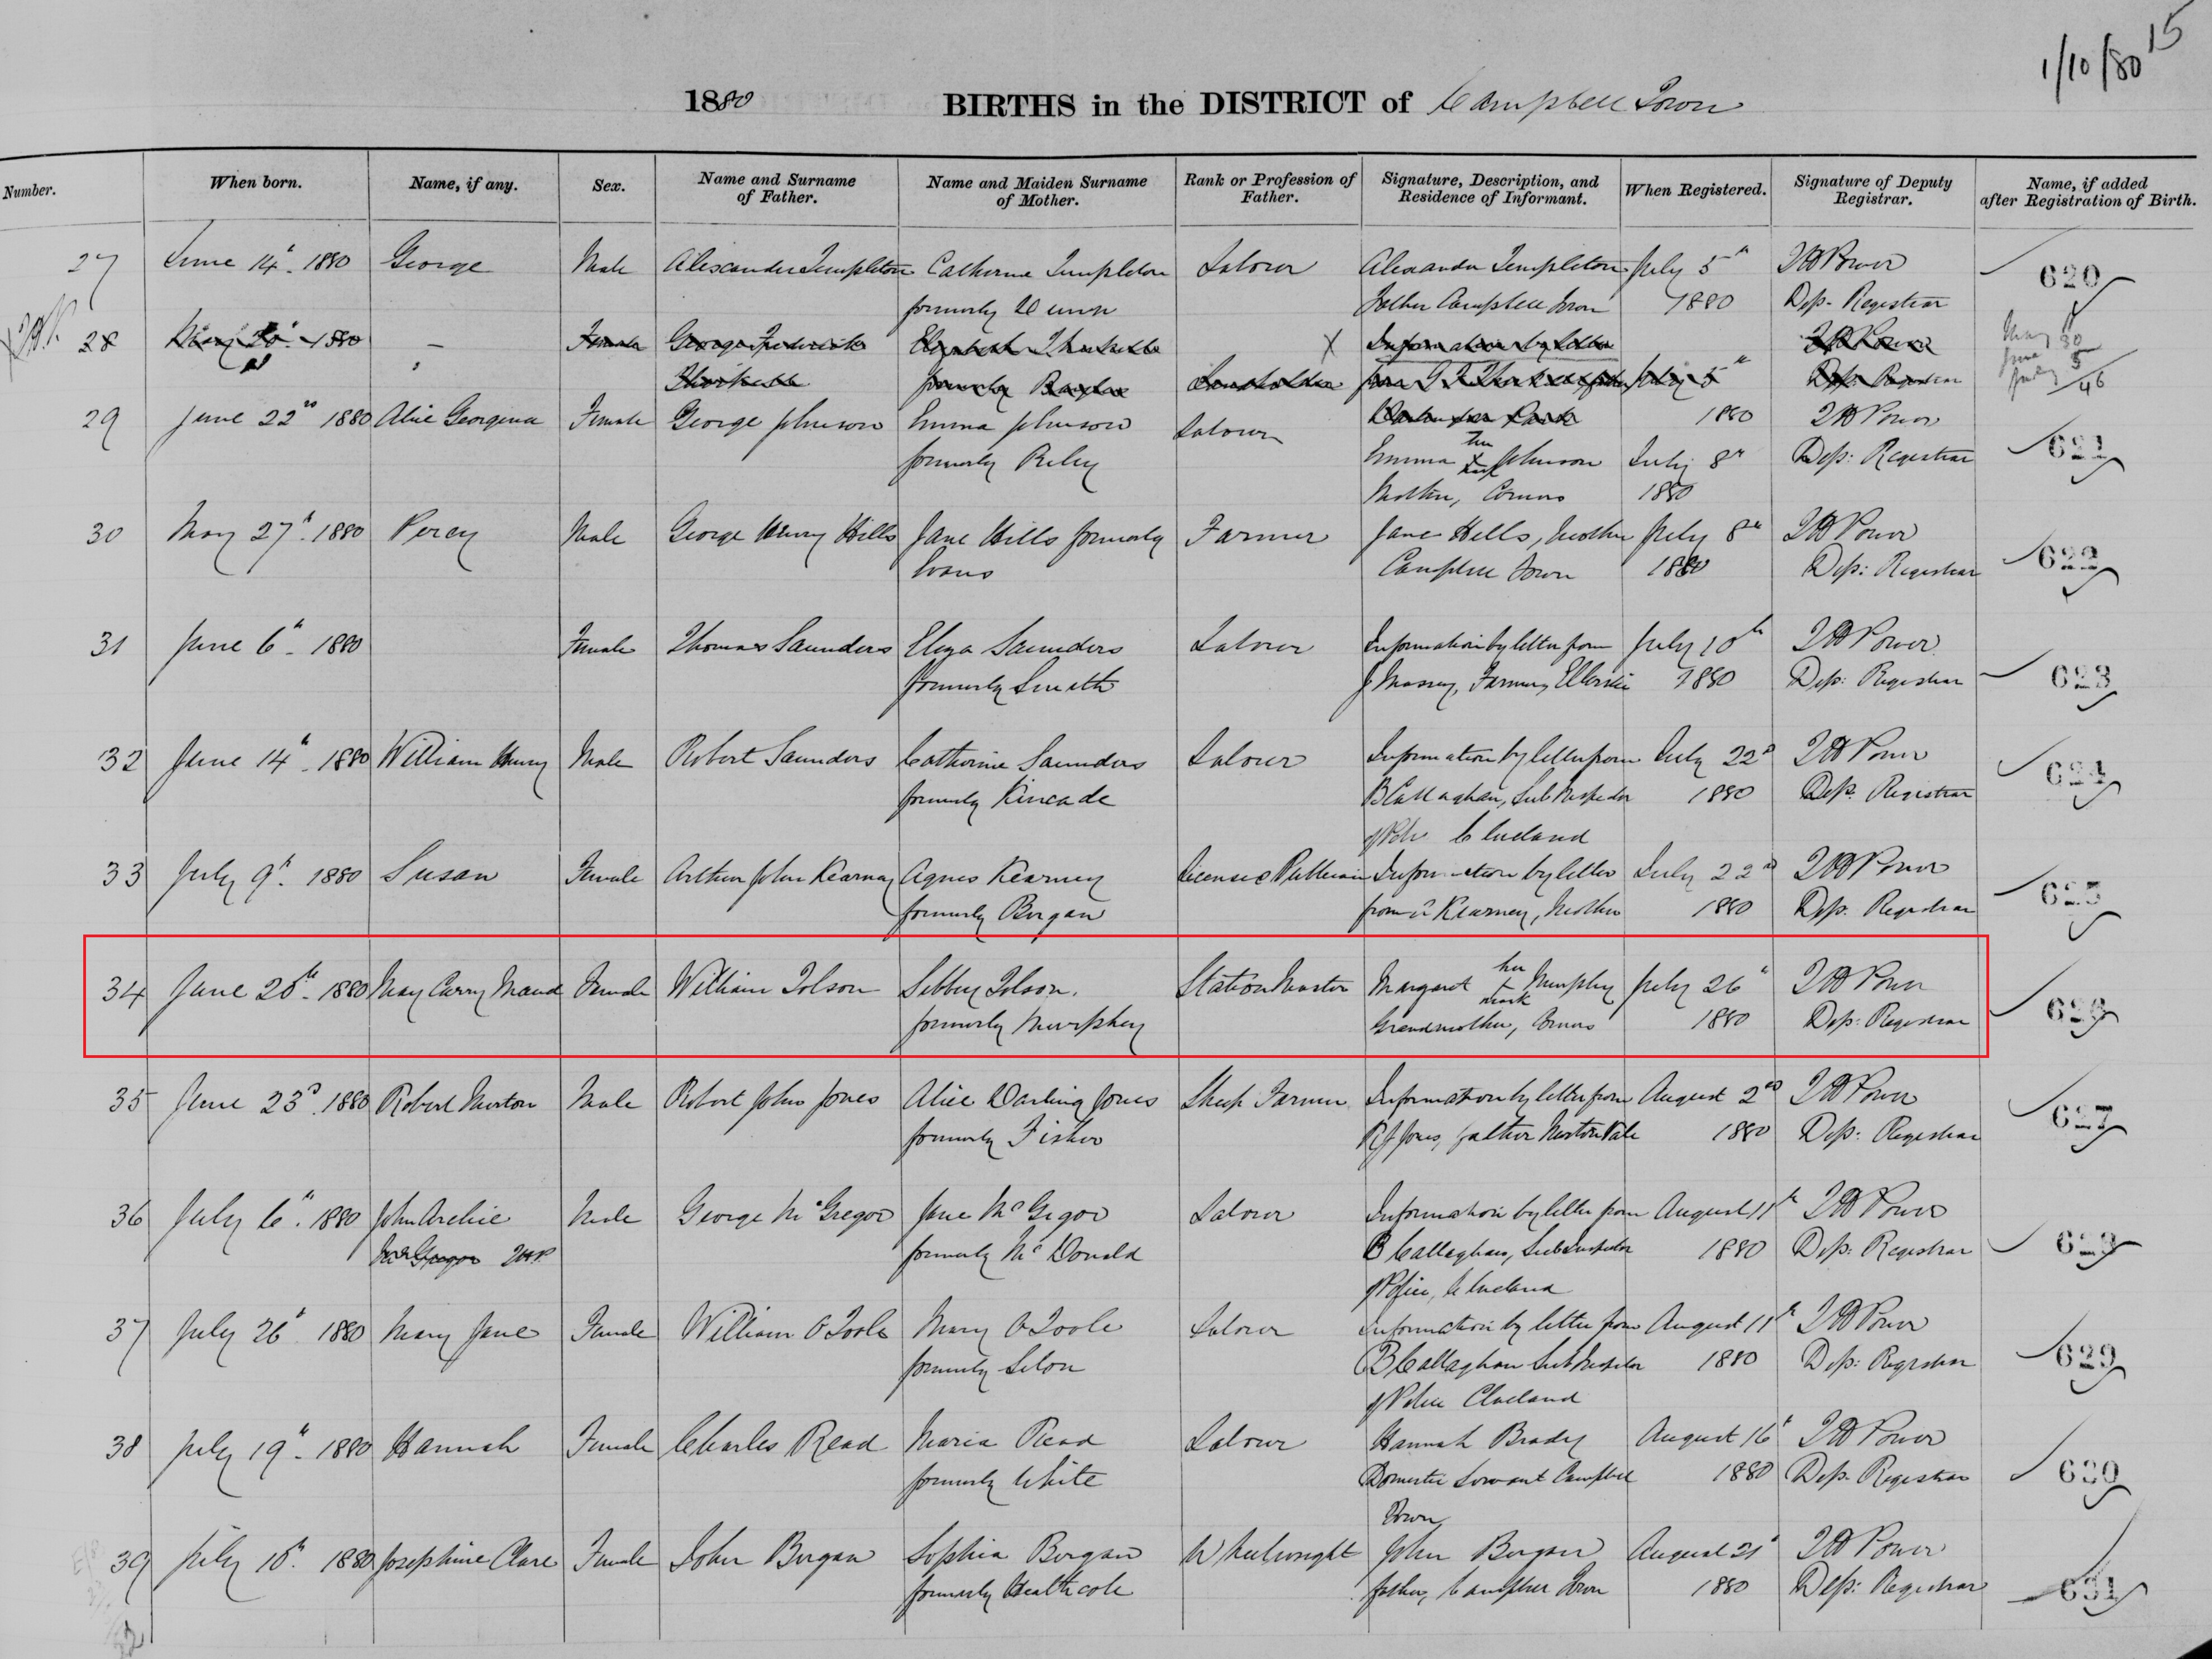 1/10/80 15
1880 BIRTHS in the DISTRICT of Campbell Town
Number. When born. Name, if any. Sex. Name and Surname of Father. Name and Maiden Surname of Mother. Rank or Profession of Father. Signature, Description, and Residence of Informant. When Registered. Signature of Deputy Registrar. Name, if added after Registration of Birth.
27 June 14th 1880 George Male Alexander Templeton Catherine Templeton Labourer Alexander Templeton July 5th Power 620
formerly Father Campbell Town 1880 Dep. Registrar
28 May 1880 — Female George Frederick Elizabeth Information by letter Power May 30
formerly Landholder from July 5th Dep: Registrar June 5
1880 July 46
29 June 22nd 1880 Alice Georgina Female George Johnson Emma Johnson Labourer Power 621
formerly Riley Emma her X mark Johnson July 8th Dep: Registrar
Mother, Conara 1880
30 May 27th 1880 Percy Male George Henry Hills Jane Hills formerly Farmer Jane Hills, Mother July 8th Power 622
Evans Campbell Town 1880 Dep: Registrar
31 June 6th 1880 Female Thomas Saunders Eliza Saunders Labourer Information by letter from July 10th Power 623
formerly Smith J Massey, Farmer, Ellerslie 1880 Dep: Registrar
32 June 14th 1880 William Henry Male Robert Saunders Catherine Saunders Labourer Information by letter from July 22d Power 624
formerly Kincade B Callaghan, Sub Inspector 1880 Dep. Registrar
of Police Cleveland
33 July 9th 1880 Susan Female Arthur John Kearney Agnes Kearney Licensed Publican Information by letter July 22nd Power 625
formerly Borgan from A Kearney, Mother 1880 Dep. Registrar
34 June 20th 1880 May Carry Maud Female William Tolson Sibbey Tolson. Station Master Margaret her X mark Murphey July 26th Power 626
formerly Murphey Grandmother, Conara 1880 Dep: Registrar
35 June 23d 1880 Robert Merton Male Robert John Jones Alice Darling Jones Sheep Farmer Information by letter from August 2nd Power 627
formerly Fisher R J Jones, father Merton Vale 1880 Dep: Registrar
36 July 6th 1880 John Archie Male George McGregor Jane McGregor Labourer Information by letter from August 11th Power 628
McGregor formerly McDonald B Callaghan, Sub Inspector 1880 Dep: Registrar
of Police, Cleveland
37 July 26th 1880 Mary Jane Female William O Toole Mary O Toole Labourer Information by letter from August 11th Power 629
formerly B Callaghan Sub Inspector 1880 Dep: Registrar
of Police Cleveland
38 July 19th 1880 Hannah Female Charles Read Maria Read Labourer Hannah Brady August 16th Power 630
formerly White Domestic Servant Campbell 1880 Dep. Registrar
Town
39 July 10th 1880 Josephine Clare Female John Borgan Sophia Borgan Wheelwright John Borgan August 21st Power 631
formerly Heathcote father, Campbell Town 1880 Dep: Registrar